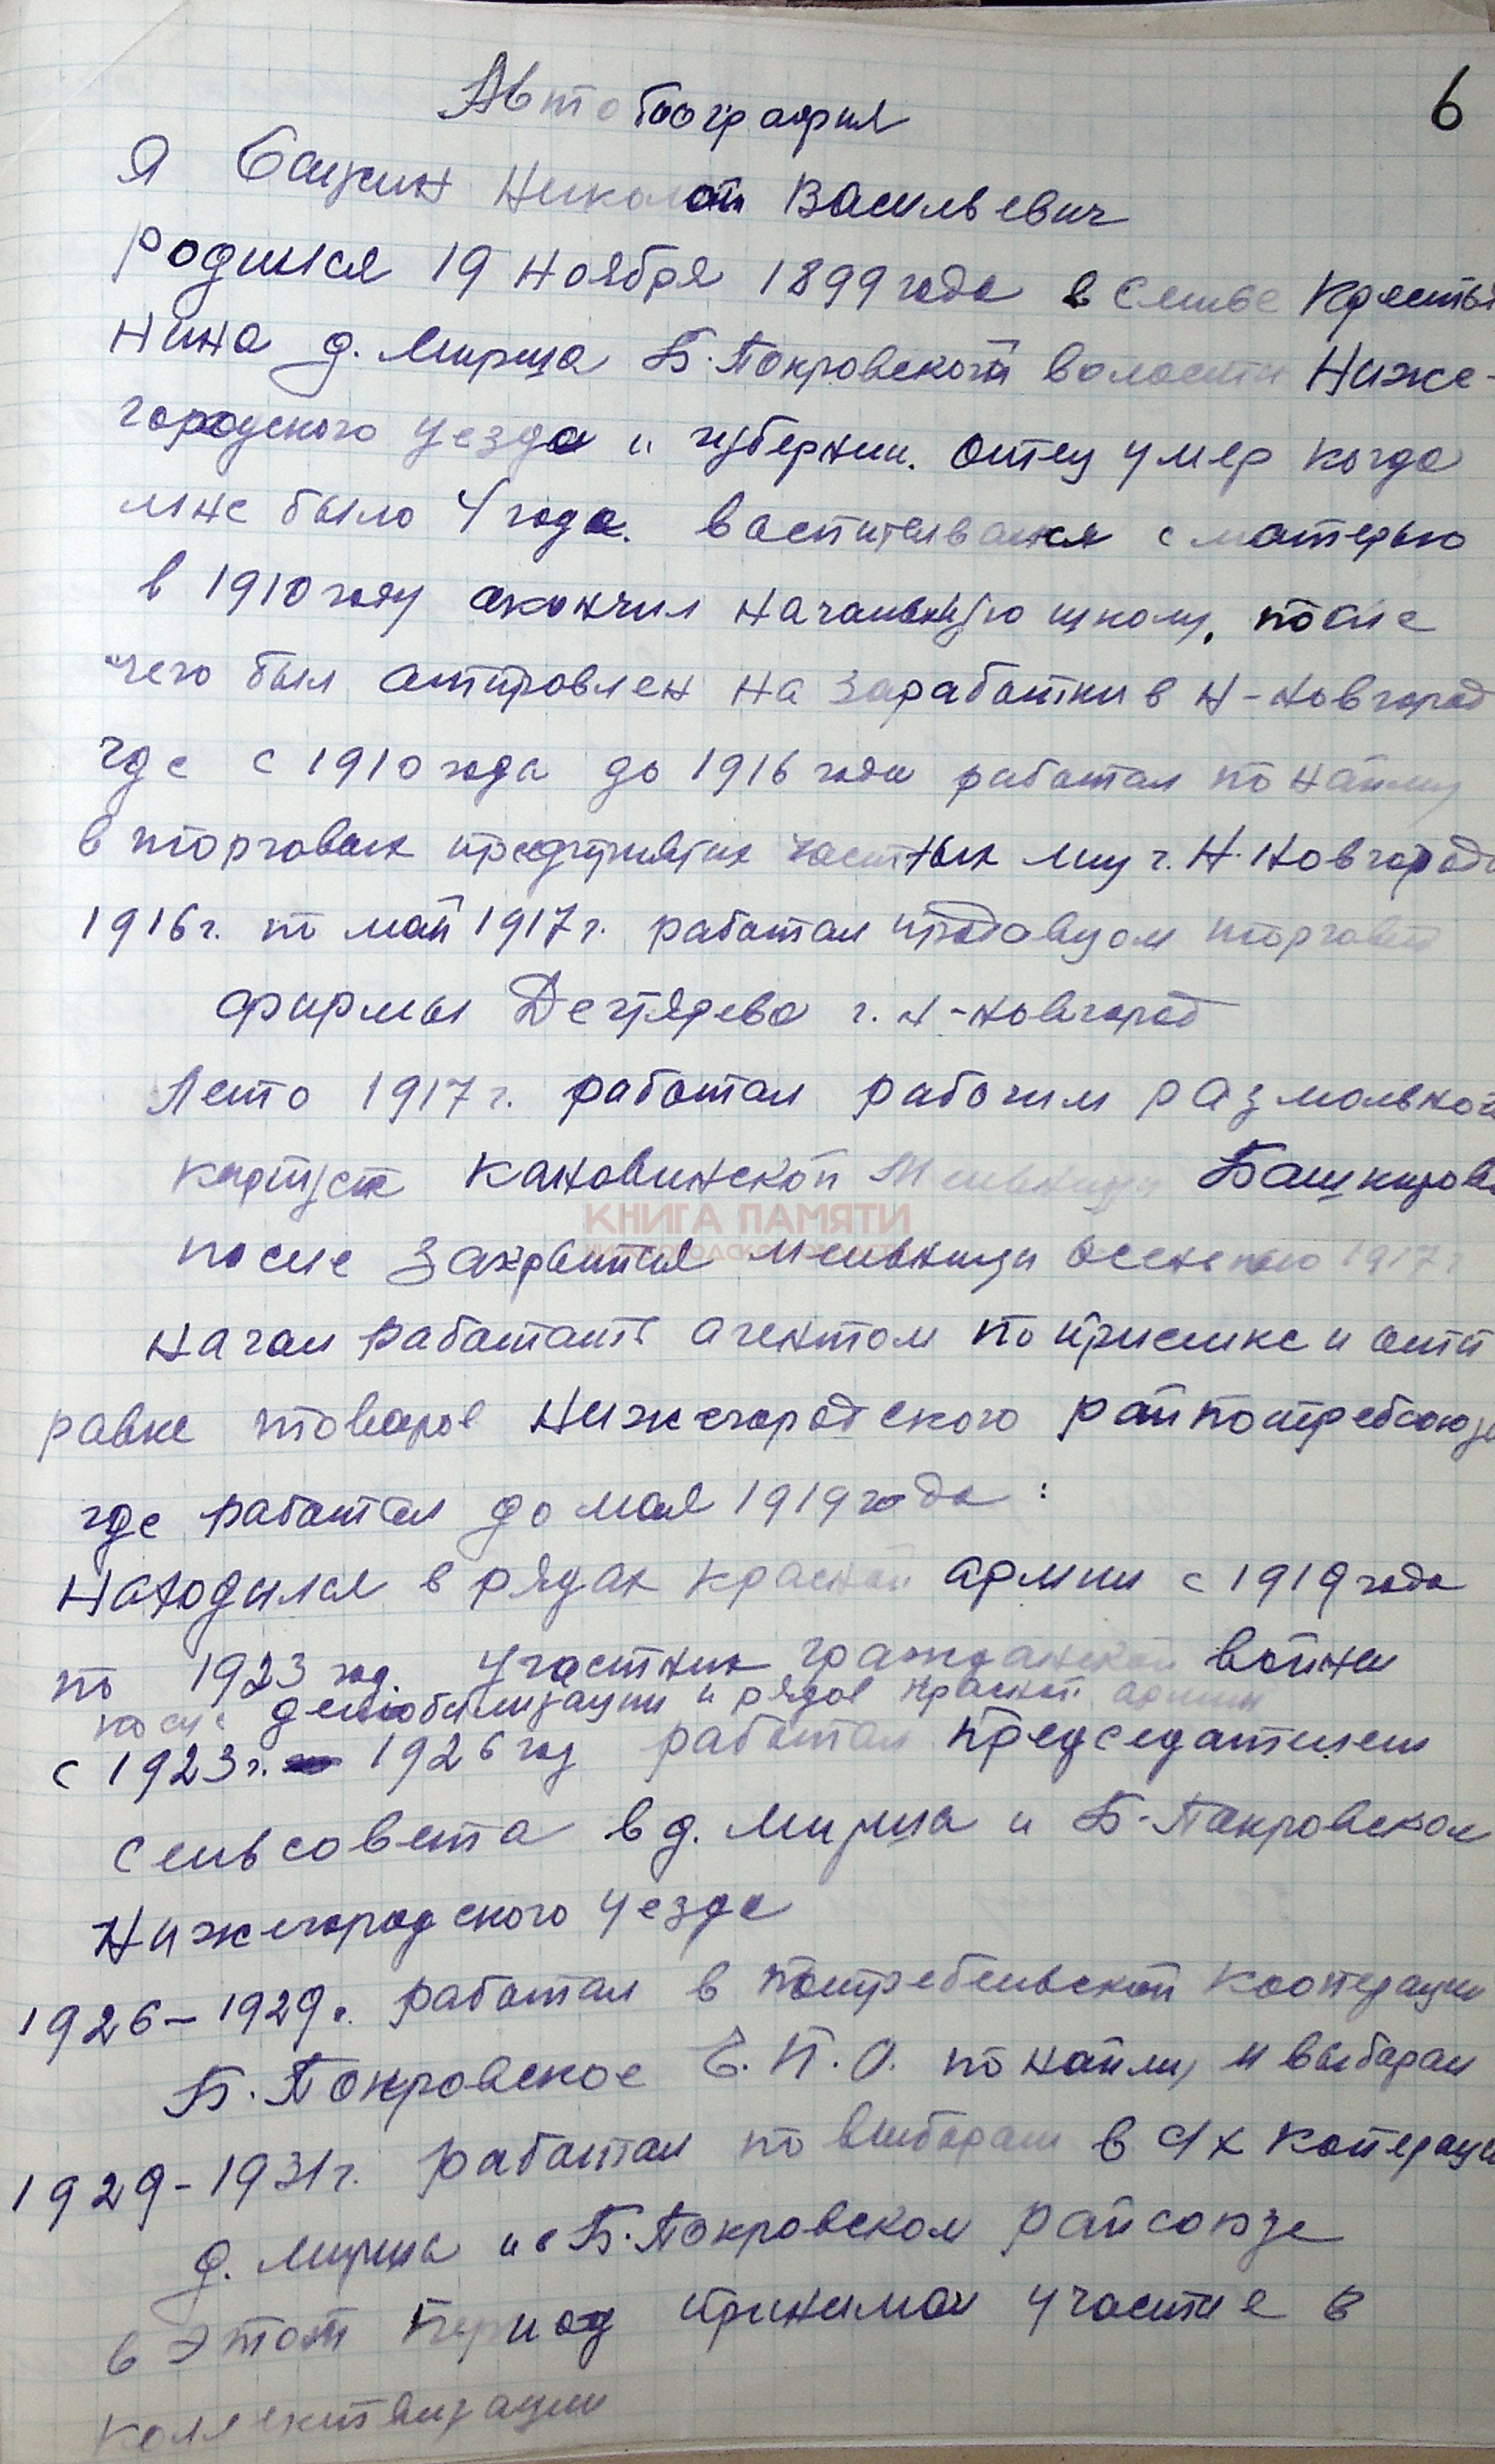 6
Автобиография
Я Николай Васильевич
родился 19 ноября 1899 года в семье крестья
нина д. Мирша Б. Покровской волости Ниже-
городского уезда и губернии. отец умер когда
мне было 4 года. воспитывался с матерью
в 1910 году окончил начальную школу, после
чего был отправлен на заработки в Н-Новгород
где с 1910 года до 1916 года работал по найму
в торговых предприятиях частных лиц г. Н. Новгорода
1916 г. по май 1917 г. работал продавцом торговой
фирмы г. Н-Новгород
Лето 1917 г. работал рабочим размольной
Кановинской Мельницы Башкирова
КНИГА ПАМЯТИ
после закрытия мельницы осенью 1917 г
начал работать агентом по приемке и отп
равке товаров Нижегородского райпотребсоюза
где работал до мая 1919 года:
Находился в рядах красной армии с 1919 года
по 1923 год. участник гражданской войны
после демобилизации и рядов красной армии
с 1923 г. 1926 год работал председателем
сельсовета в д. Мирша и Б-Покровском
Нижегородского уезда
1926-1929 г. работал в потребельской кооперации
Б. Покровское Е.П.О. по найму и выборам
1929-1931 г. работал по выборам в с/х коперации
д. Мирша и в Б. Покровском райсоюзе
в этот период принимал участие в
коллективизации